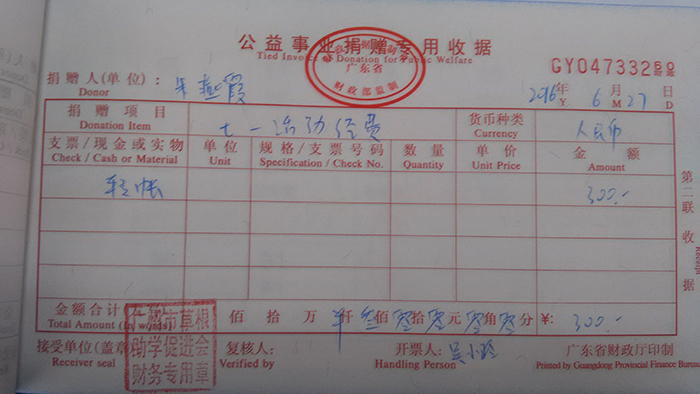 公益事业捐赠专用收据
Tied Invoice of Donation for Public Welfare
广东省
财政部监制
GY04733289
捐赠人(单位): 朱燕霞 2016年 6月 27日
Donor Y M D
捐赠项目 七一活动经费 货币种类 人民币
Donation Item Currency
支票/现金或实物 单位 规格/支票号码 数量 单价 金额
Check / Cash or Material Unit Specification / Check No. Quantity Unit Price Amount
转帐 300.-
金额合计 佰拾万仟叁佰零拾零元零角零分 ¥: 300.-
Total Amount (In words)
接受单位(盖章) 复核人: 开票人: 吴小玲 广东省财政厅印制
Receiver seal Verified by Handling Person Printed by Guangdong Provincial Finance Bureau
市草根
助学促进会
财务专用章
第二联 收据